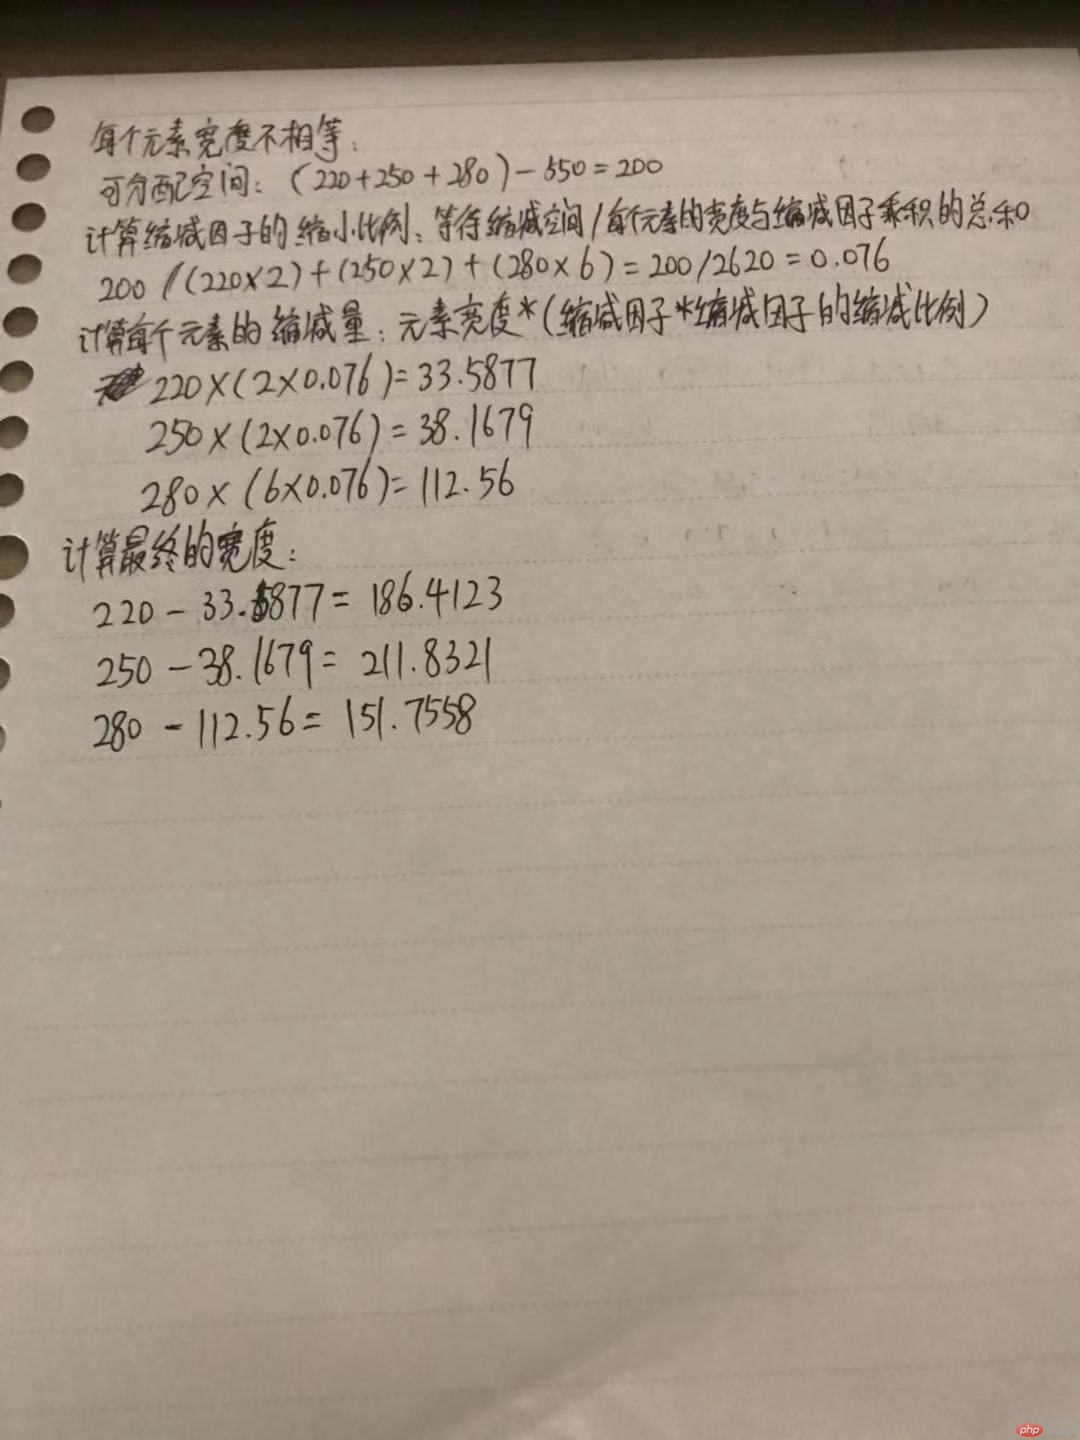 每个元素宽度不相等:
可分配空间: (220+250+280)-550=200
计算缩减因子的缩小比例: 等待缩减空间/每个元素的宽度与缩减因子乘积的总和
200/(220×2)+(250×2)+(280×6)=200/2620=0.076
计算每个元素的缩减量: 元素宽度*(缩减因子*缩减因子的缩减比例)
220×(2×0.076)=33.5877
250×(2×0.076)=38.1679
280×(6×0.076)=112.56
计算最终的宽度:
220-33.5877=186.4123
250-38.1679=211.8321
280-112.56=151.7558
php